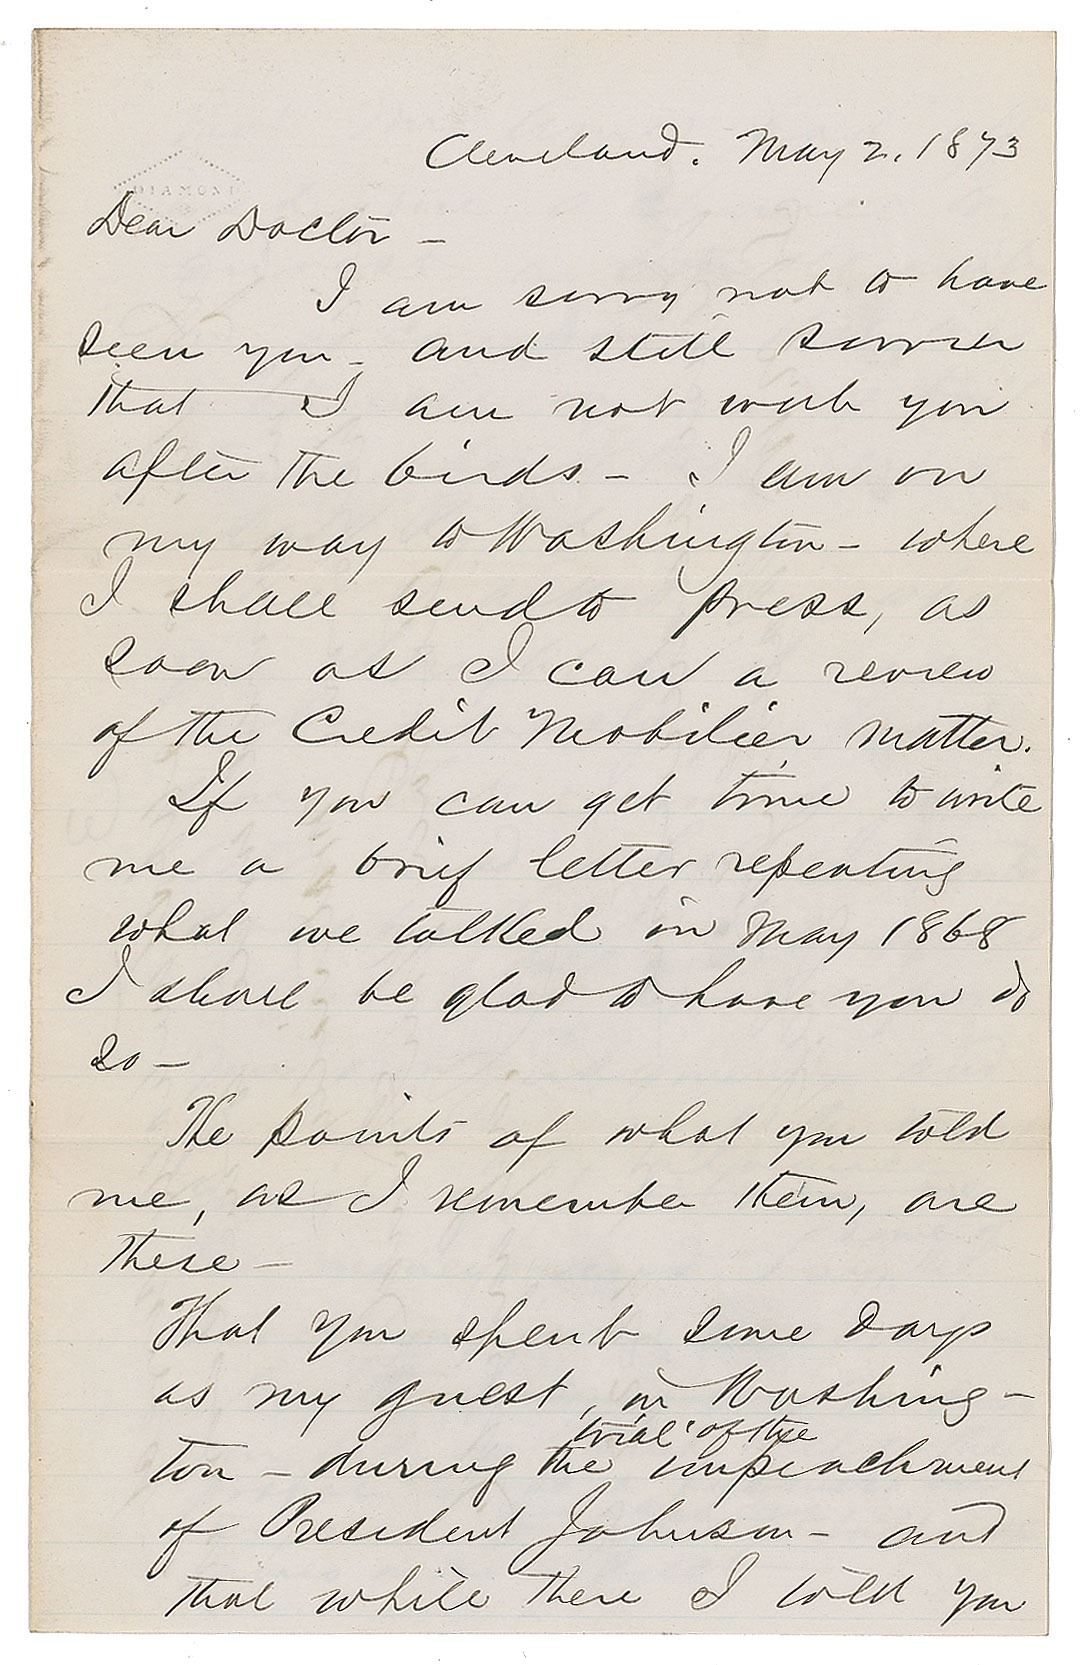 Cleveland. May 2. 1873
DIAMOND
Dear Doctor –
I am sorry not to have
seen you – and still sorrier
that I am not with you
after the birds – I am on
my way to Washington – where
I shall send to press, as
soon as I can a review
of the Credit Mobilier matter.
If you can get time to write
me a brief letter repeating
what we talked in May 1868
I shall be glad to have you do
so –
The points of what you told
me, as I remember them, are
these –
That you spent some days
as my guest, in Washing-
trial of the
ton – during the impeachment
of President Johnson – and
that while there I told you